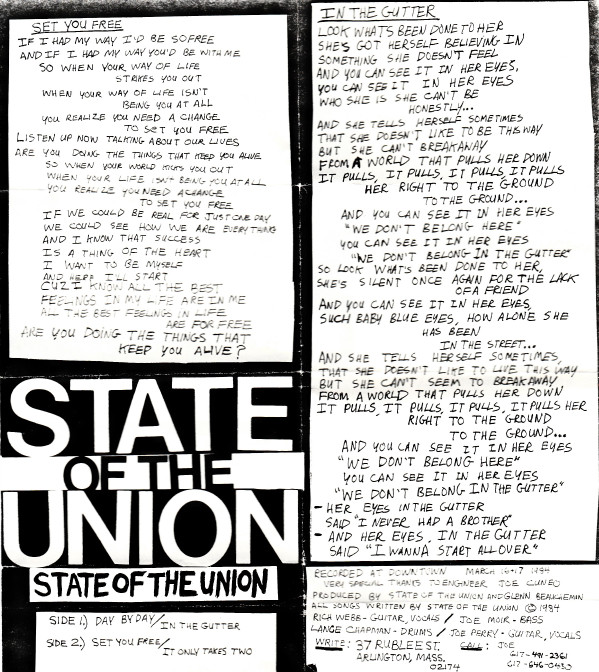 SET YOU FREE
IF I HAD MY WAY I'D BE SO FREE
AND IF I HAD MY WAY YOU'D BE WITH ME
SO WHEN YOUR WAY OF LIFE
STRIKES YOU OUT
WHEN YOUR WAY OF LIFE ISN'T
BEING YOU AT ALL
YOU REALIZE YOU NEED A CHANGE
TO SET YOU FREE
LISTEN UP NOW TALKING ABOUT OUR LIVES
ARE YOU DOING THE THINGS THAT KEEP YOU ALIVE
SO WHEN YOUR WORLD KICKS YOU OUT
WHEN YOUR LIFE ISN'T BEING YOU AT ALL
YOU REALIZE YOU NEED A CHANGE
TO SET YOU FREE
IF WE COULD BE REAL FOR JUST ONE DAY
WE COULD SEE HOW WE ARE EVERYTHING
AND I KNOW THAT SUCCESS
IS A THING OF THE HEART
I WANT TO BE MYSELF
AND HERE I'LL START
CUZ I KNOW ALL THE BEST
FEELINGS IN MY LIFE ARE IN ME
ALL THE BEST FEELINGS IN LIFE
ARE FOR FREE
ARE YOU DOING THE THINGS THAT
KEEP YOU ALIVE?
STATE
OF THE
UNION
STATE OF THE UNION
SIDE 1.) DAY BY DAY / IN THE GUTTER
SIDE 2.) SET YOU FREE / IT ONLY TAKES TWO
IN THE GUTTER
LOOK WHATS BEEN DONE TO HER
SHE'S GOT HERSELF BELIEVING IN
SOMETHING SHE DOESN'T FEEL
AND YOU CAN SEE IT IN HER EYES,
YOU CAN SEE IT IN HER EYES
WHO SHE IS SHE CAN'T BE
HONESTLY...
AND SHE TELLS HERSELF SOMETIMES
THAT SHE DOESN'T LIKE TO BE THIS WAY
BUT SHE CAN'T BREAKAWAY
FROM A WORLD THAT PULLS HER DOWN
IT PULLS, IT PULLS, IT PULLS, IT PULLS
HER RIGHT TO THE GROUND
TO THE GROUND...
AND YOU CAN SEE IT IN HER EYES
"WE DON'T BELONG HERE"
YOU CAN SEE IT IN HER EYES
"WE DON'T BELONG IN THE GUTTER"
SO LOOK WHAT'S BEEN DONE TO HER,
SHE'S SILENT ONCE AGAIN FOR THE LACK
OF A FRIEND
AND YOU CAN SEE IT IN HER EYES,
SUCH BABY BLUE EYES, HOW ALONE SHE
HAS BEEN
IN THE STREET...
AND SHE TELLS HERSELF SOMETIMES,
THAT SHE DOESN'T LIKE TO LIVE THIS WAY
BUT SHE CAN'T SEEM TO BREAKAWAY
FROM A WORLD THAT PULLS HER DOWN
IT PULLS, IT PULLS, IT PULLS, IT PULLS HER
RIGHT TO THE GROUND
TO THE GROUND...
AND YOU CAN SEE IT IN HER EYES
"WE DON'T BELONG HERE"
YOU CAN SEE IT IN HER EYES
"WE DON'T BELONG IN THE GUTTER"
- HER EYES IN THE GUTTER
SAID "I NEVER HAD A BROTHER"
- AND HER EYES, IN THE GUTTER
SAID "I WANNA START ALL OVER"
RECORDED AT DOWNTOWN MARCH 16+17 1994
VERY SPECIAL THANKS TO ENGINEER JOE CUNEO
PRODUCED BY STATE OF THE UNION AND GLENN BEAUCHEMIN
ALL SONGS WRITTEN BY STATE OF THE UNION © 1994
RICH WEBB - GUITAR, VOCALS / JOE MOIR - BASS
LANCE CHAPMAN - DRUMS / JOE PERRY - GUITAR, VOCALS
WRITE: 37 RUBLEE ST. CALL: JOE
ARLINGTON, MASS. 617-
02174 617-646-0430